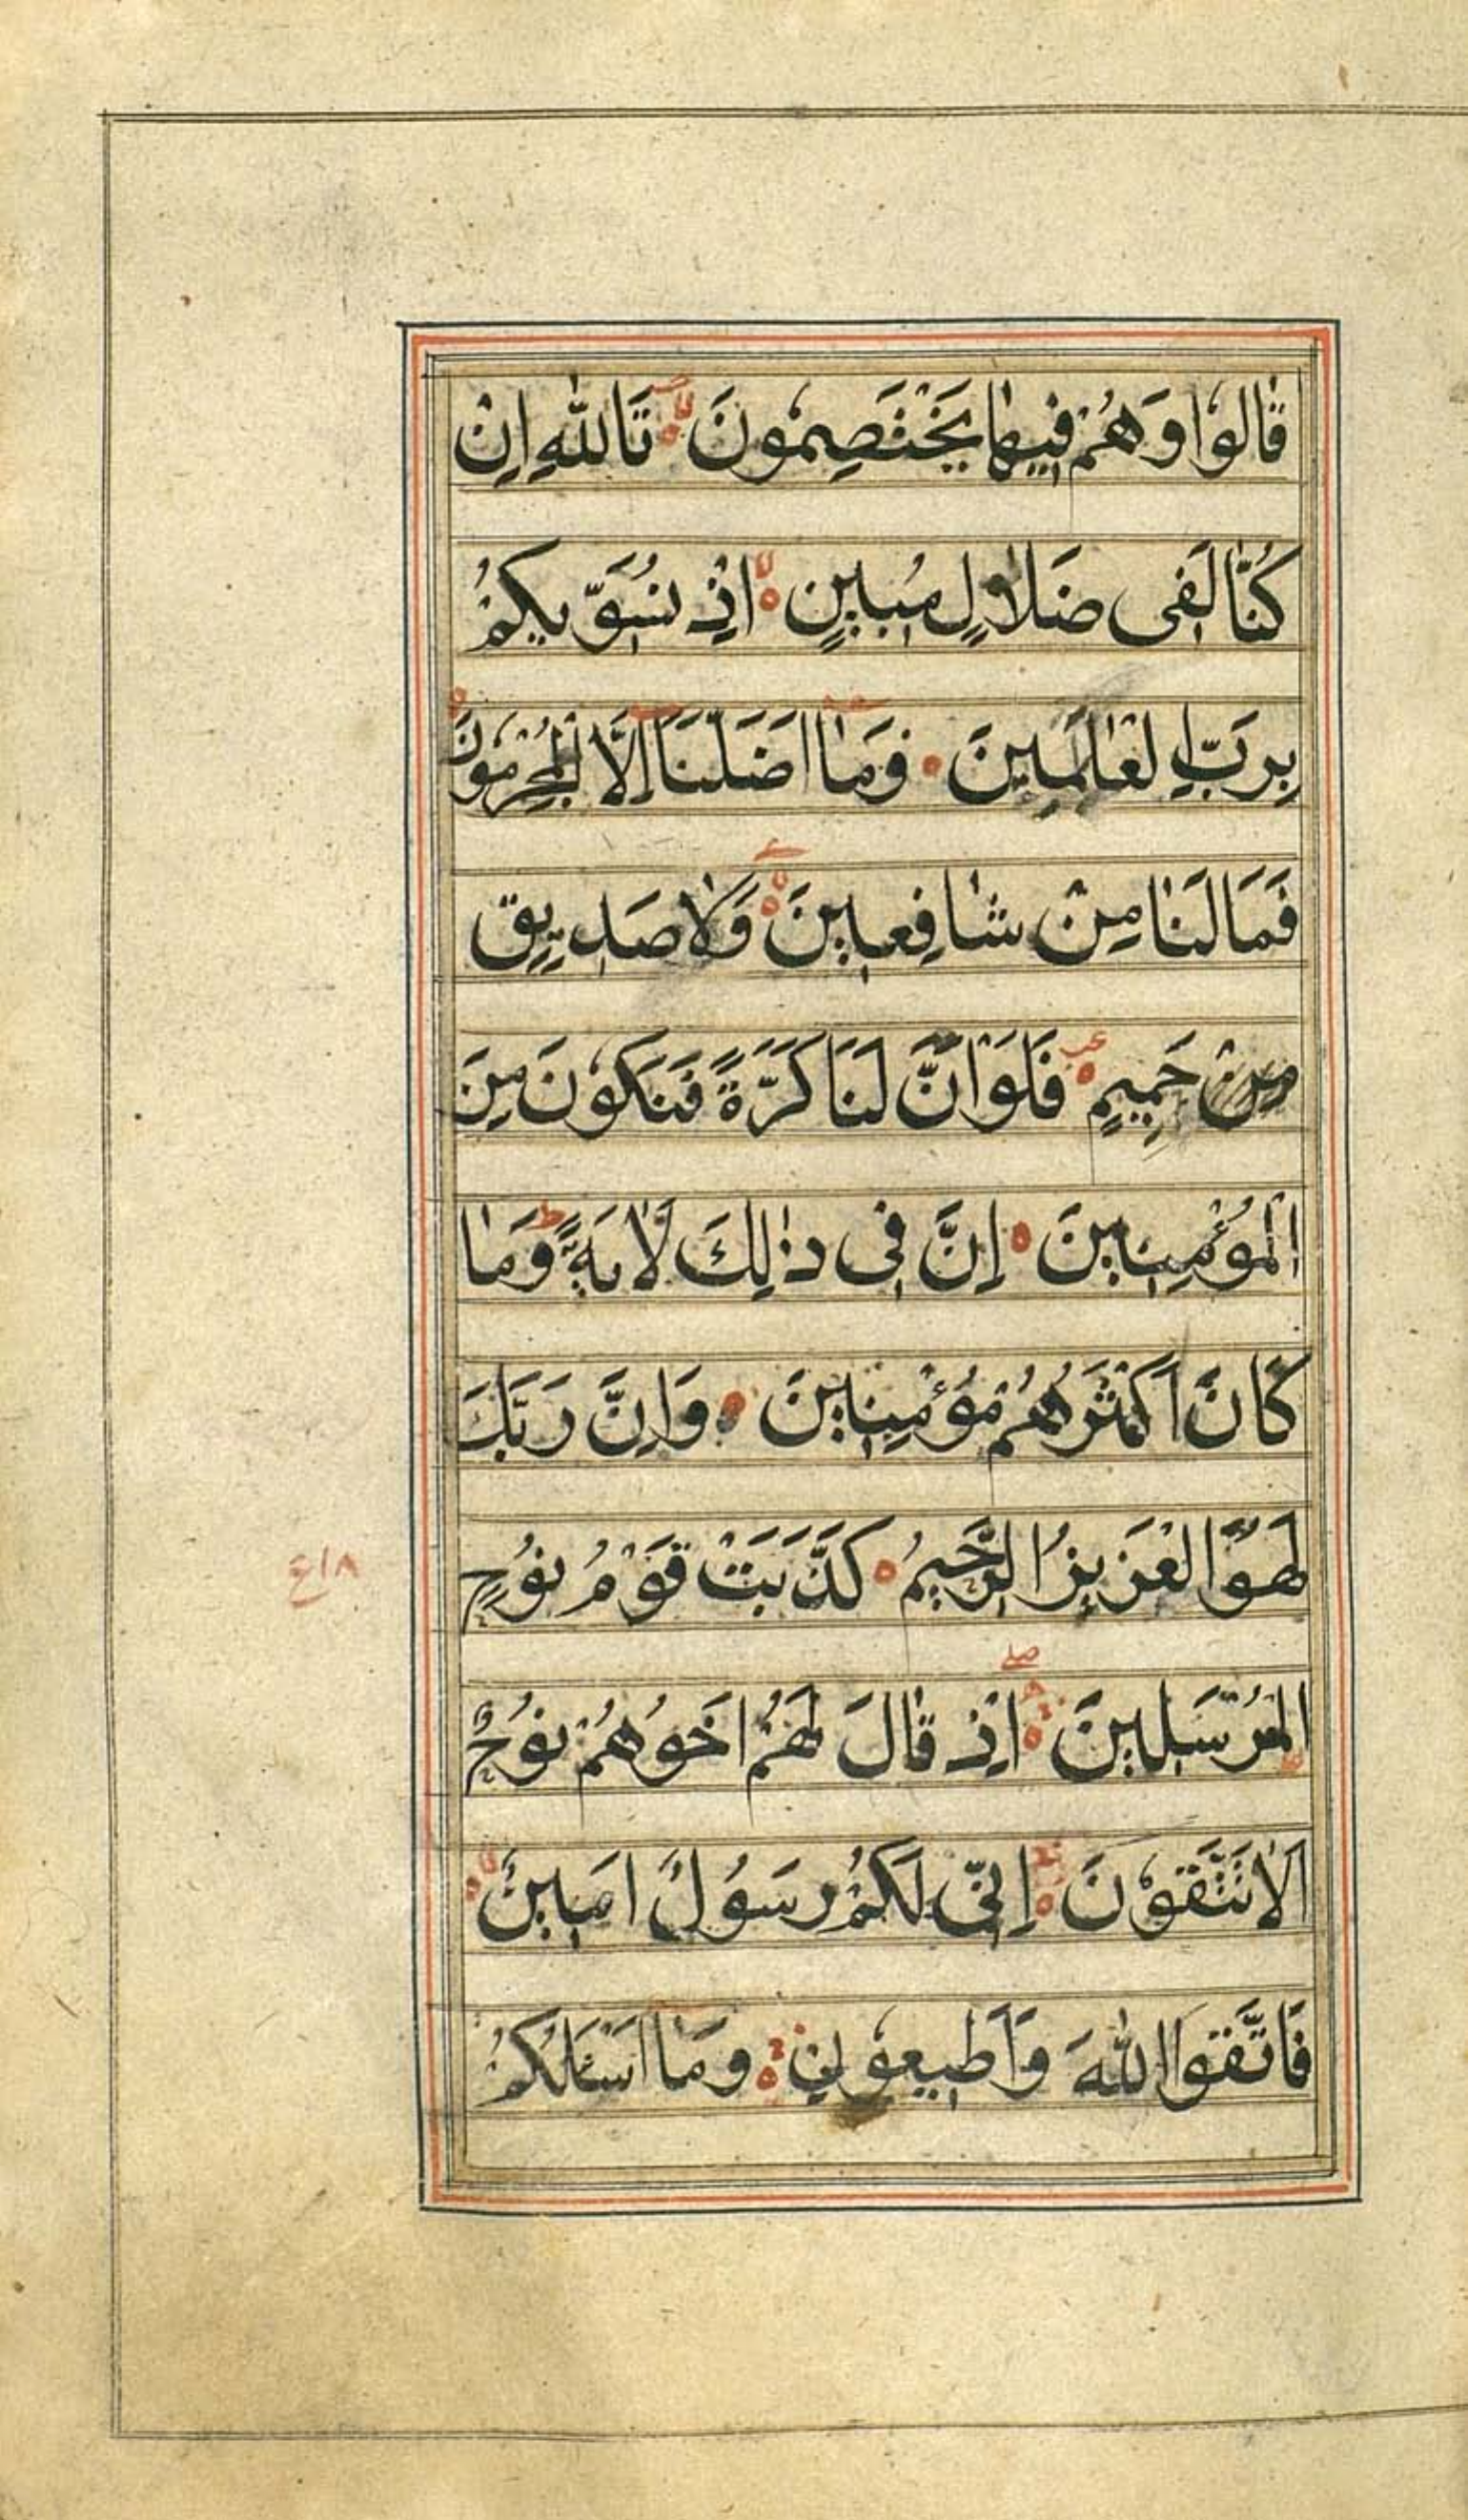 قَالُوْا وَهُمْ فِيهَا يَخْتَصِمُونَ تَاللّٰهِ اِنْ
كُنَّا لَفِى ضَلَالٍ مُبِينٍ اِذْ نُسَوِّيكُمْ
بِرَبِّ الْعَالَمِينَ وَمَا اَضَلَّنَا اِلَّا الْمُجْرِمُونَ
فَمَا لَنَا مِنْ شَافِعِينَ وَلَا صَدِيقٍ
مِنْ حَمِيمٍ فَلَوْ اَنَّ لَنَا كَرَّةً فَنَكُوْنَ مِنَ
الْمُؤْمِنِينَ اِنَّ فِى ذٰلِكَ لَاٰيَةً وَمَا
كَانَ اَكْثَرُهُمْ مُؤْمِنِينَ وَاِنَّ رَبَّكَ
لَهُوَ الْعَزِيزُ الرَّحِيمُ كَذَّبَتْ قَوْمُ نُوحٍ
ع١٨
الْمُرْسَلِينَ اِذْ قَالَ لَهُمْ اَخُوهُمْ نُوحٌ
اَلَا تَتَّقُوْنَ اِنِّى لَكُمْ رَسُولٌ اَمِينٌ
فَاتَّقُوا اللّٰهَ وَاَطِيعُوْنِ وَمَا اَسْاَلُكُمْ